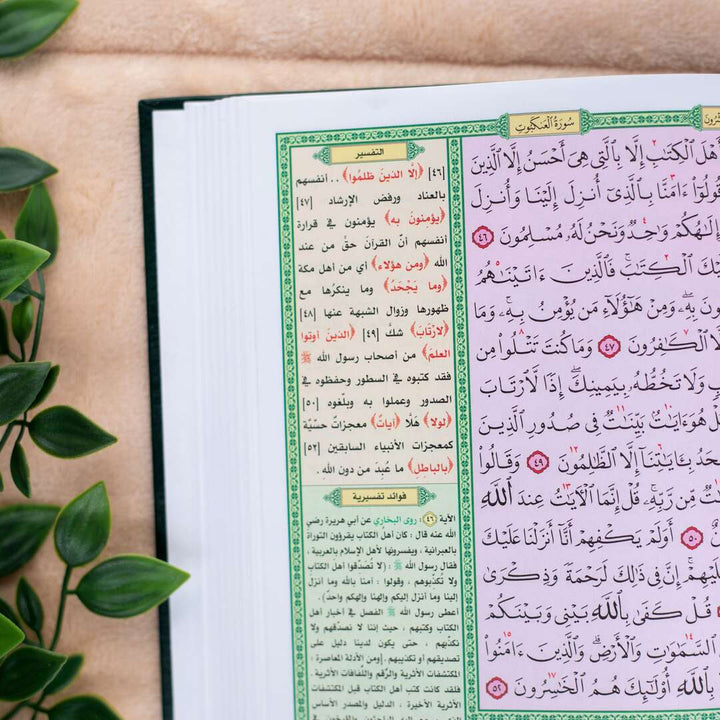 سُورَةُ العَنكَبُوتِ
أَهْلَ الْكِتَٰبِ إِلَّا بِالَّتِي هِيَ أَحْسَنُ إِلَّا الَّذِينَ
ءَامَنَّا بِالَّذِيٓ أُنزِلَ إِلَيْنَا وَأُنزِلَ
وَإِلَٰهُكُمْ وَٰحِدٌ وَنَحْنُ لَهُۥ مُسْلِمُونَ ٤٦
الْكِتَٰبَ ۚ فَالَّذِينَ ءَاتَيْنَٰهُمُ
بِهِۦ ۖ وَمِنْ هَٰٓؤُلَآءِ مَن يُؤْمِنُ بِهِۦ ۚ وَمَا
الْكَٰفِرُونَ ٤٧ وَمَا كُنتَ تَتْلُوا۟ مِن
وَلَا تَخُطُّهُۥ بِيَمِينِكَ ۖ إِذًا لَّٱرْتَابَ
هُوَ ءَايَٰتٌۢ بَيِّنَٰتٌ فِي صُدُورِ الَّذِينَ
بِـَٔايَٰتِنَآ إِلَّا الظَّٰلِمُونَ ٤٩ وَقَالُوا۟
مِّن رَّبِّهِۦ ۖ قُلْ إِنَّمَا الْءَايَٰتُ عِندَ اللَّهِ
٥٠ أَوَلَمْ يَكْفِهِمْ أَنَّآ أَنزَلْنَا عَلَيْكَ
عَلَيْهِمْ ۚ إِنَّ فِي ذَٰلِكَ لَرَحْمَةً وَذِكْرَىٰ
قُلْ كَفَىٰ بِاللَّهِ بَيْنِي وَبَيْنَكُمْ
السَّمَٰوَٰتِ وَالْأَرْضِ ۗ وَالَّذِينَ ءَامَنُوا۟
بِاللَّهِ أُو۟لَٰٓئِكَ هُمُ الْخَٰسِرُونَ ٥٢
التفسير
[٤٦] ﴿إِلَّا الَّذينَ ظَلَمُوا﴾ .. أنفسهم
بالعناد ورفض الإرشاد [٤٧]
﴿يؤمنون به﴾ يؤمنون في قرارة
أنفسهم أنّ القرآن حقّ من عند
الله ﴿ومن هؤلاء﴾ أي من أهل مكة
﴿وما يَجْحَدُ﴾ وما ينكرها مع
ظهورها وزوال الشبهة عنها [٤٨]
﴿لارْتَابَ﴾ شكَّ [٤٩] ﴿الذين أوتوا
العلم﴾ من أصحاب رسول الله ﷺ
فقد كتبوه في السطور وحفظوه في
الصدور وعملوا به وبلّغوه [٥٠]
﴿لولا﴾ هَلَّا ﴿آياتٌ﴾ معجزات حسّيّة
كمعجزات الأنبياء السابقين [٥٢]
﴿بالباطِلِ﴾ ما عُبِدَ من دون الله .
فوائد تفسيرية
الآية ٤٦ : روى البخاري عن أبي هريرة رضي
الله عنه قال : كان أهل الكتاب يقرؤون التوراة
بالعبرانية ، ويفسرونها لأهل الإسلام بالعربية ،
فقال رسول الله ﷺ : (لا تُصدّقوا أهل الكتاب
ولا تكذبوهم ، وقولوا : آمنا بالله وما أنزل
إلينا وما أنزل إليكم وإلهنا وإلهكم واحد) .
أعطى رسول الله ﷺ الفصل في أخبار أهل
الكتاب وكتبهم ، حيث إننا لا نصدقهم ولا
نكذّبهم ، حتى يكون لدينا دليل على
تصديقهم أو تكذيبهم . [ومن الأدلة المعاصرة ،
المكتشفات الأثرية والرُّقم واللفافات الأثرية .
فلقد كانت كتب أهل الكتاب قبل المكتشفات
الأثرية الأخيرة ، الدليل والمصدر الأساس